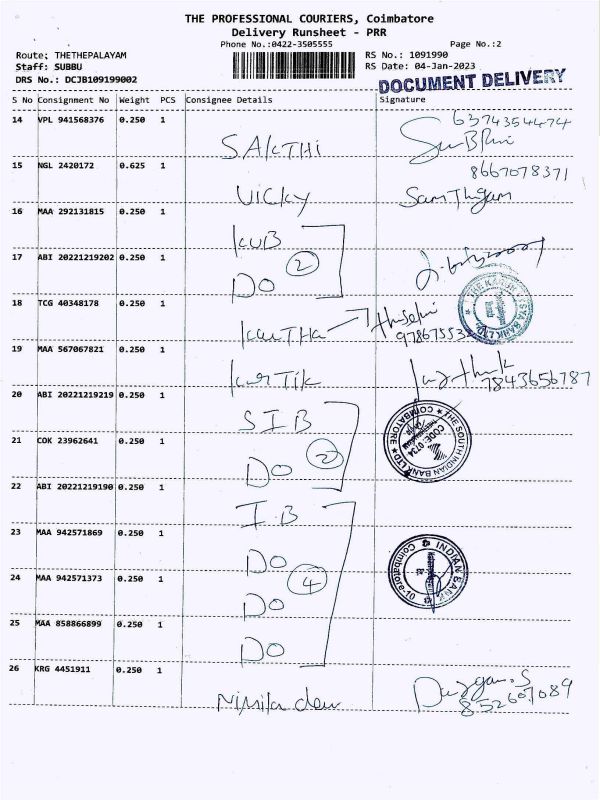 THE PROFESSIONAL COURIERS, Coimbatore
Delivery Runsheet - PRR
Phone No.:0422-3505555 Page No.:2
Route: THETHEPALAYAM RS No.: 1091990
Staff: SUBBU RS Date: 04-Jan-2023
DRS No.: DCJB109199002 DOCUMENT DELIVERY
S No Consignment No Weight PCS Consignee Details Signature
14 VPL 941568376 0.250 1 SAKTHI 6374354474
15 NGL 2420172 0.625 1 VICKY 8667078371
16 MAA 292131815 0.250 1 KVB
17 ABI 20221219202 0.250 1 DO 2
18 TCG 40348178 0.250 1
19 MAA 567067821 0.250 1 Kartik 7843656787
20 ABI 20221219219 0.250 1 SIB
THE SOUTH INDIAN BANK LTD COIMBATORE
CODE: 0734
21 COK 23962641 0.250 1 DO 2
22 ABI 20221219190 0.250 1 I.B
23 MAA 942571869 0.250 1 DO
INDIAN BANK Coimbatore-10
24 MAA 942571373 0.250 1 DO 4
25 MAA 858866899 0.250 1 DO
26 KRG 4451911 0.250 1